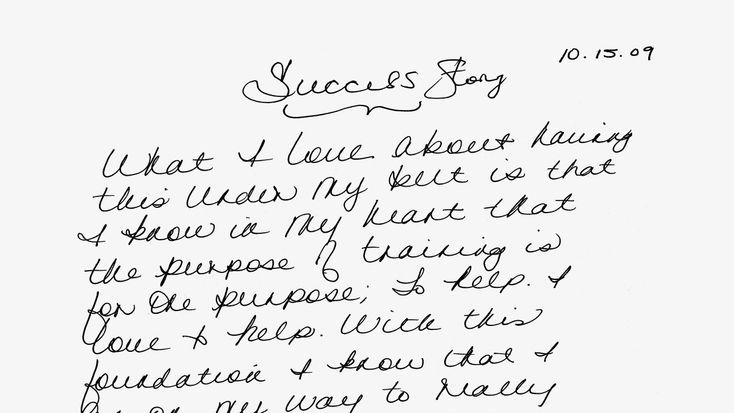 10.15.09
Success Story
What I love about having
this under my belt is that
I know in my heart that
the purpose of training is
for one purpose; To help. I
love to help. With this
foundation I know that I
on my way to really